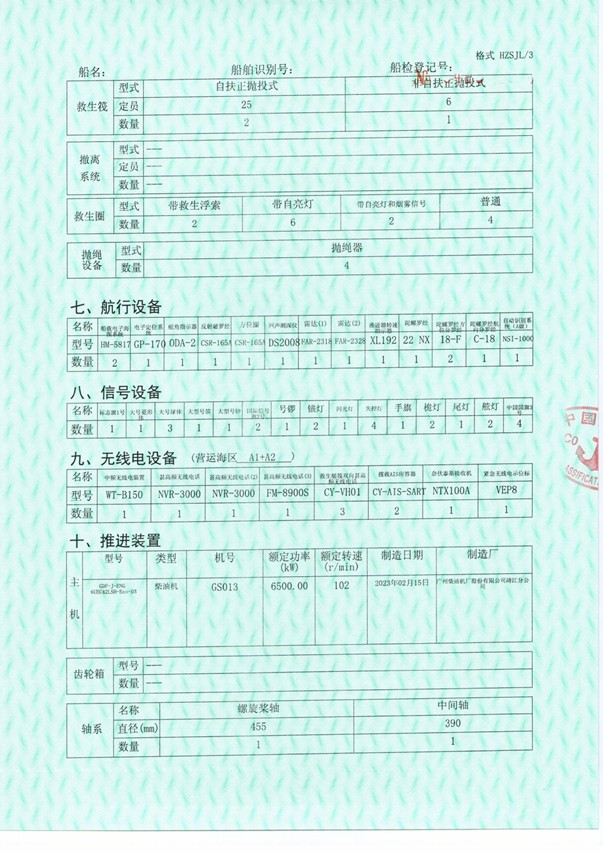 格式 HZSJL/3
船名： 船舶识别号： 船检登记号：
救生筏 型式 自扶正抛投式 非自扶正抛投式
定员 25 6
数量 2 1
撤离系统 型式 ---
定员 ---
数量 ---
救生圈 型式 带救生浮索 带自亮灯 带自亮灯和烟雾信号 普通
数量 2 6 2 4
抛绳设备 型式 抛绳器
数量 4
七、航行设备
名称 船载电子海图系统 电子定位系统 舵角指示器 反射磁罗经 方位圈 回声测深仪 雷达(1) 雷达(2) 推进器转速指示器 陀螺罗经 陀螺罗经方位分罗经 陀螺罗经航向分罗经 自动识别系统(A级)
型号 HM-5817 GP-170 ODA-2 CSR-165A CSR-165A DS2008 FAR-2318 FAR-2328 XL192 22 NX 18-F C-18 NSI-1000
数量 2 1 1 1 1 1 1 1 1 1 2 1 1
八、信号设备
名称 大号球体 号锣 号钟 闪光灯 手旗 桅灯 尾灯 舷灯
数量 1 1 3 1 1 2 1 2 1 4 1 2 1 2 4
九、无线电设备 (营运海区 A1+A2 )
名称 中频无线电装置 甚高频无线电话 甚高频无线电话(2) 甚高频无线电话(3) 救生艇筏双向甚高频无线电话 搜救AIS应答器 奈伏泰斯接收机 紧急无线电示位标
型号 WT-B150 NVR-3000 NVR-3000 FM-8900S CY-VH01 CY-AIS-SART NTX100A VEP8
数量 1 1 1 1 3 2 1 1
十、推进装置
主机 型号 类型 机号 额定功率(kW) 额定转速(r/min) 制造日期 制造厂
柴油机 GS013 6500.00 102 2023年02月15日 广州柴油机厂股份有限公司靖江分公司
齿轮箱 型号 ---
数量 ---
轴系 名称 螺旋桨轴 中间轴
直径(mm) 455 390
数量 1 1
中国
CO
ASSIFICAT